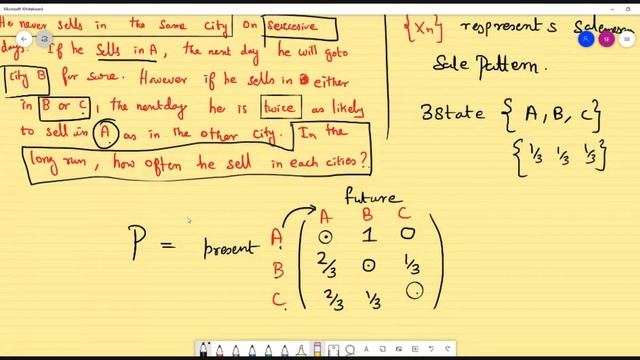 Microsoft Whiteboard
He never sells in the same city on successive
days. If he sells in A, the next day he will goto
city B for sure. However if he sells in either
in B or C, the nextday he is twice as likely
to sell in A as in the other city. In the
long run, how often he sell in each cities?
{Xn} respresents Salesman
Sale Pattern.
3 State { A, B, C }
{ 1/3 1/3 1/3 }
future
A B C
P = present A 0 1 0
B 2/3 0 1/3
C 2/3 1/3 0